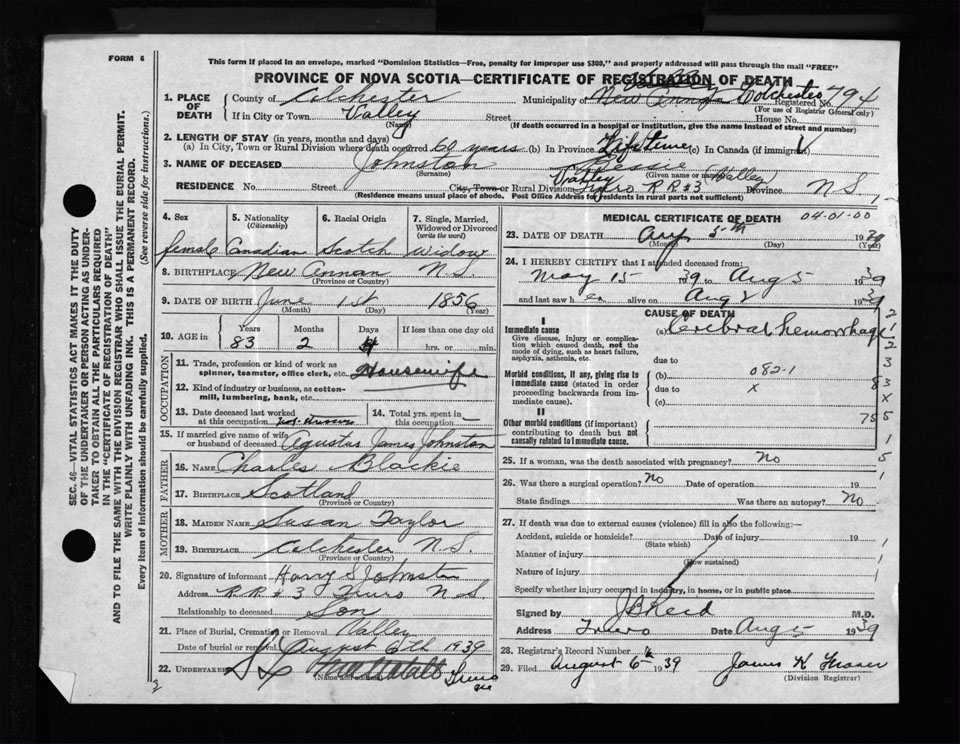 FORM 6
This form if placed in an envelope, marked "Dominion Statistics—Free, penalty for improper use $300," and properly addressed will pass through the mail "FREE"
PROVINCE OF NOVA SCOTIA—CERTIFICATE OF REGISTRATION OF DEATH
1. PLACE OF DEATH
County of Colchester Municipality of New Annan Colchester Registered No. 794
(For use of Registrar General only)
If in City or Town Valley Street House No.
(Name) (If death occurred in a hospital or institution, give the name instead of street and number)
2. LENGTH OF STAY (in years, months and days)
(a) In City, Town or Rural Division where death occurred 60 years (b) In Province Lifetime (c) In Canada (if immigrant)
3. NAME OF DECEASED Johnston Bessie
(Surname) (Given or names)
RESIDENCE No. Street City, Town or Rural Division Valley Truro R.R. #3 (Valley) Province N.S.
(Residence means usual place of abode. Post Office Address for residents in rural parts not sufficient)
4. Sex female
5. Nationality (Citizenship) Canadian
6. Racial Origin Scotch
7. Single, Married, Widowed or Divorced (write the word) Widow
8. BIRTHPLACE New Annan N.S.
(Province or Country)
9. DATE OF BIRTH June 1st 1856
(Month) (Day) (Year)
10. AGE in Years 83 Months 2 Days 4 If less than one day hrs. or min.
OCCUPATION
11. Trade, profession or kind of work as spinner, teamster, office clerk, etc. Housewife
12. Kind of industry or business, as cotton-mill, lumbering, bank, etc.
13. Date deceased last worked at this occupation
14. Total yrs. spent in this occupation
15. If married give name of wife or husband of deceased Agustus James Johnston
FATHER
16. NAME Charles Blackie
17. BIRTHPLACE Scotland
(Province or Country)
MOTHER
18. MAIDEN NAME Susan Taylor
19. BIRTHPLACE Colchester N.S.
(Province or Country)
20. Signature of informant Harry S Johnston
Address R.R. #3 Truro N.S.
Relationship to deceased Son
21. Place of Burial, Cremation or Removal Valley
Date of burial or removal August 6th 1939
22. UNDERTAKER Truro
(Name and address)
MEDICAL CERTIFICATE OF DEATH 04-01-00
23. DATE OF DEATH Aug 5th 1939
(Month) (Day) (Year)
24. I HEREBY CERTIFY that I attended deceased from:
May 15 1939 to Aug 5 1939
and last saw her alive on Aug 2 1939
CAUSE OF DEATH
I
Immediate cause (a) Cerebral hemorrhage
Give disease, injury or complication which caused death, not the mode of dying, such as heart failure, asphyxia, asthenia, etc.
due to
Morbid conditions, if any, giving rise to immediate cause (stated in order proceeding backwards from immediate cause).
(b) 082-1
due to x
(c)
II
Other morbid conditions (if important) contributing to death but not causally related to immediate cause.
25. If a woman, was the death associated with pregnancy? No
26. Was there a surgical operation? No Date of operation 19
State findings Was there an autopsy? No
27. If death was due to external causes (violence) fill in also the following:—
Accident, suicide or homicide? Date of injury 19
(State which)
Manner of injury
(How sustained)
Nature of injury
Specify whether injury occurred in industry, in home, or in public place
Signed by J B Reid M.D.
Address Truro Date Aug 5 1939
28. Registrar's Record Number
29. Filed August 6th 1939 James K Fraser
(Division Registrar)
SEC. 46—VITAL STATISTICS ACT MAKES IT THE DUTY OF THE UNDERTAKER OR PERSON ACTING AS UNDERTAKER TO OBTAIN ALL THE PARTICULARS REQUIRED IN THE "CERTIFICATE OF REGISTRATION OF DEATH"
AND TO FILE THE SAME WITH THE DIVISION REGISTRAR WHO SHALL ISSUE THE BURIAL PERMIT.
WRITE PLAINLY WITH UNFADING INK. THIS IS A PERMANENT RECORD.
Every item of information should be carefully supplied. (See reverse side for instructions.)